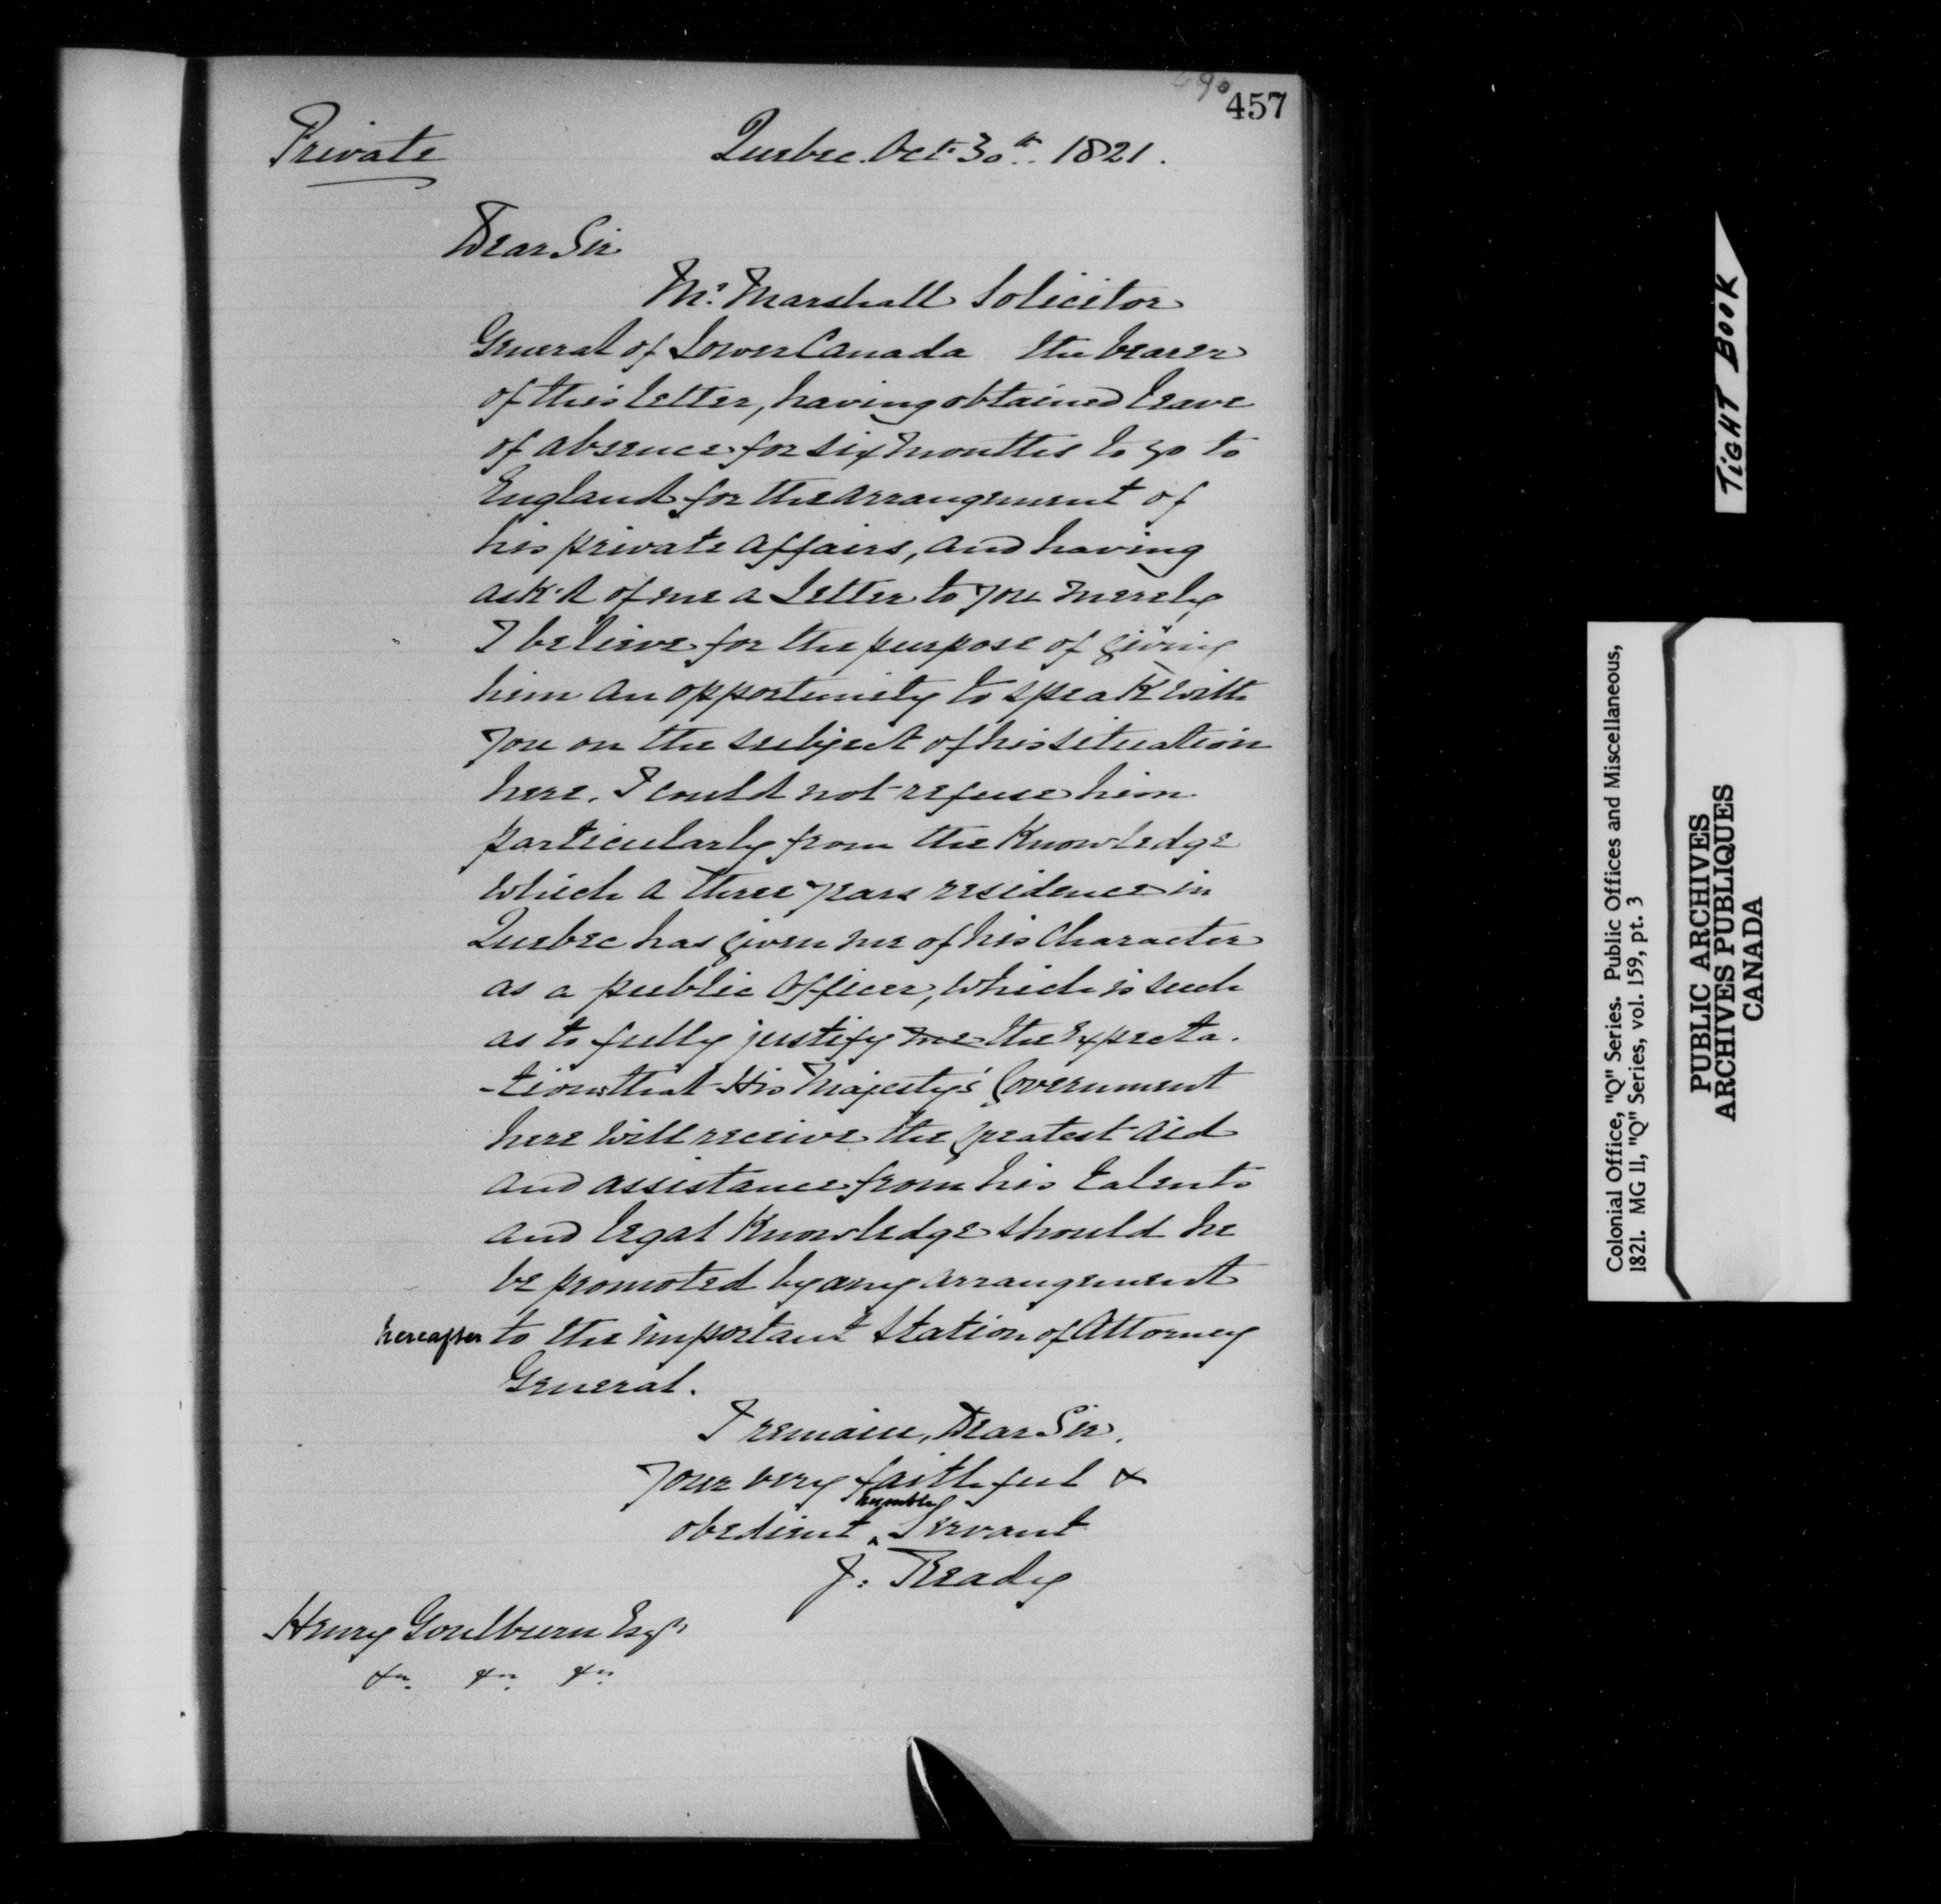 457
Private
Quebec Oct. 30th. 1821.
Dear Sir
Mr. Marshall Solicitor
General of Lower Canada the bearer
of this letter, having obtained leave
of absence for six months to go to
England for the arrangement of
his private affairs, and having
ask'd of me a letter to you merely
I believe for the purpose of giving
him an opportunity to speak with
you on the subject of his situation
here. I could not refuse him
particularly from the knowledge
which a three years residence in
Quebec has given me of his character
as a public officer, which is such
as to fully justify me the expecta-
-tions that His Majesty's Government
here will receive the greatest aid
and assistance from his talents
and legal knowledge should he
be promoted by any arrangement
hereafter to the important station of Attorney
General.
I remain, Dear Sir,
Your very faithful &
obedient humble Servant
J: Ready
Henry Goulburn Esqr
&c. &c. &c.
TIGHT BOOK
Colonial Office, "Q" Series. Public Offices and Miscellaneous,
1821. MG 11, "Q" Series, vol. 159, pt. 3
PUBLIC ARCHIVES
ARCHIVES PUBLIQUES
CANADA